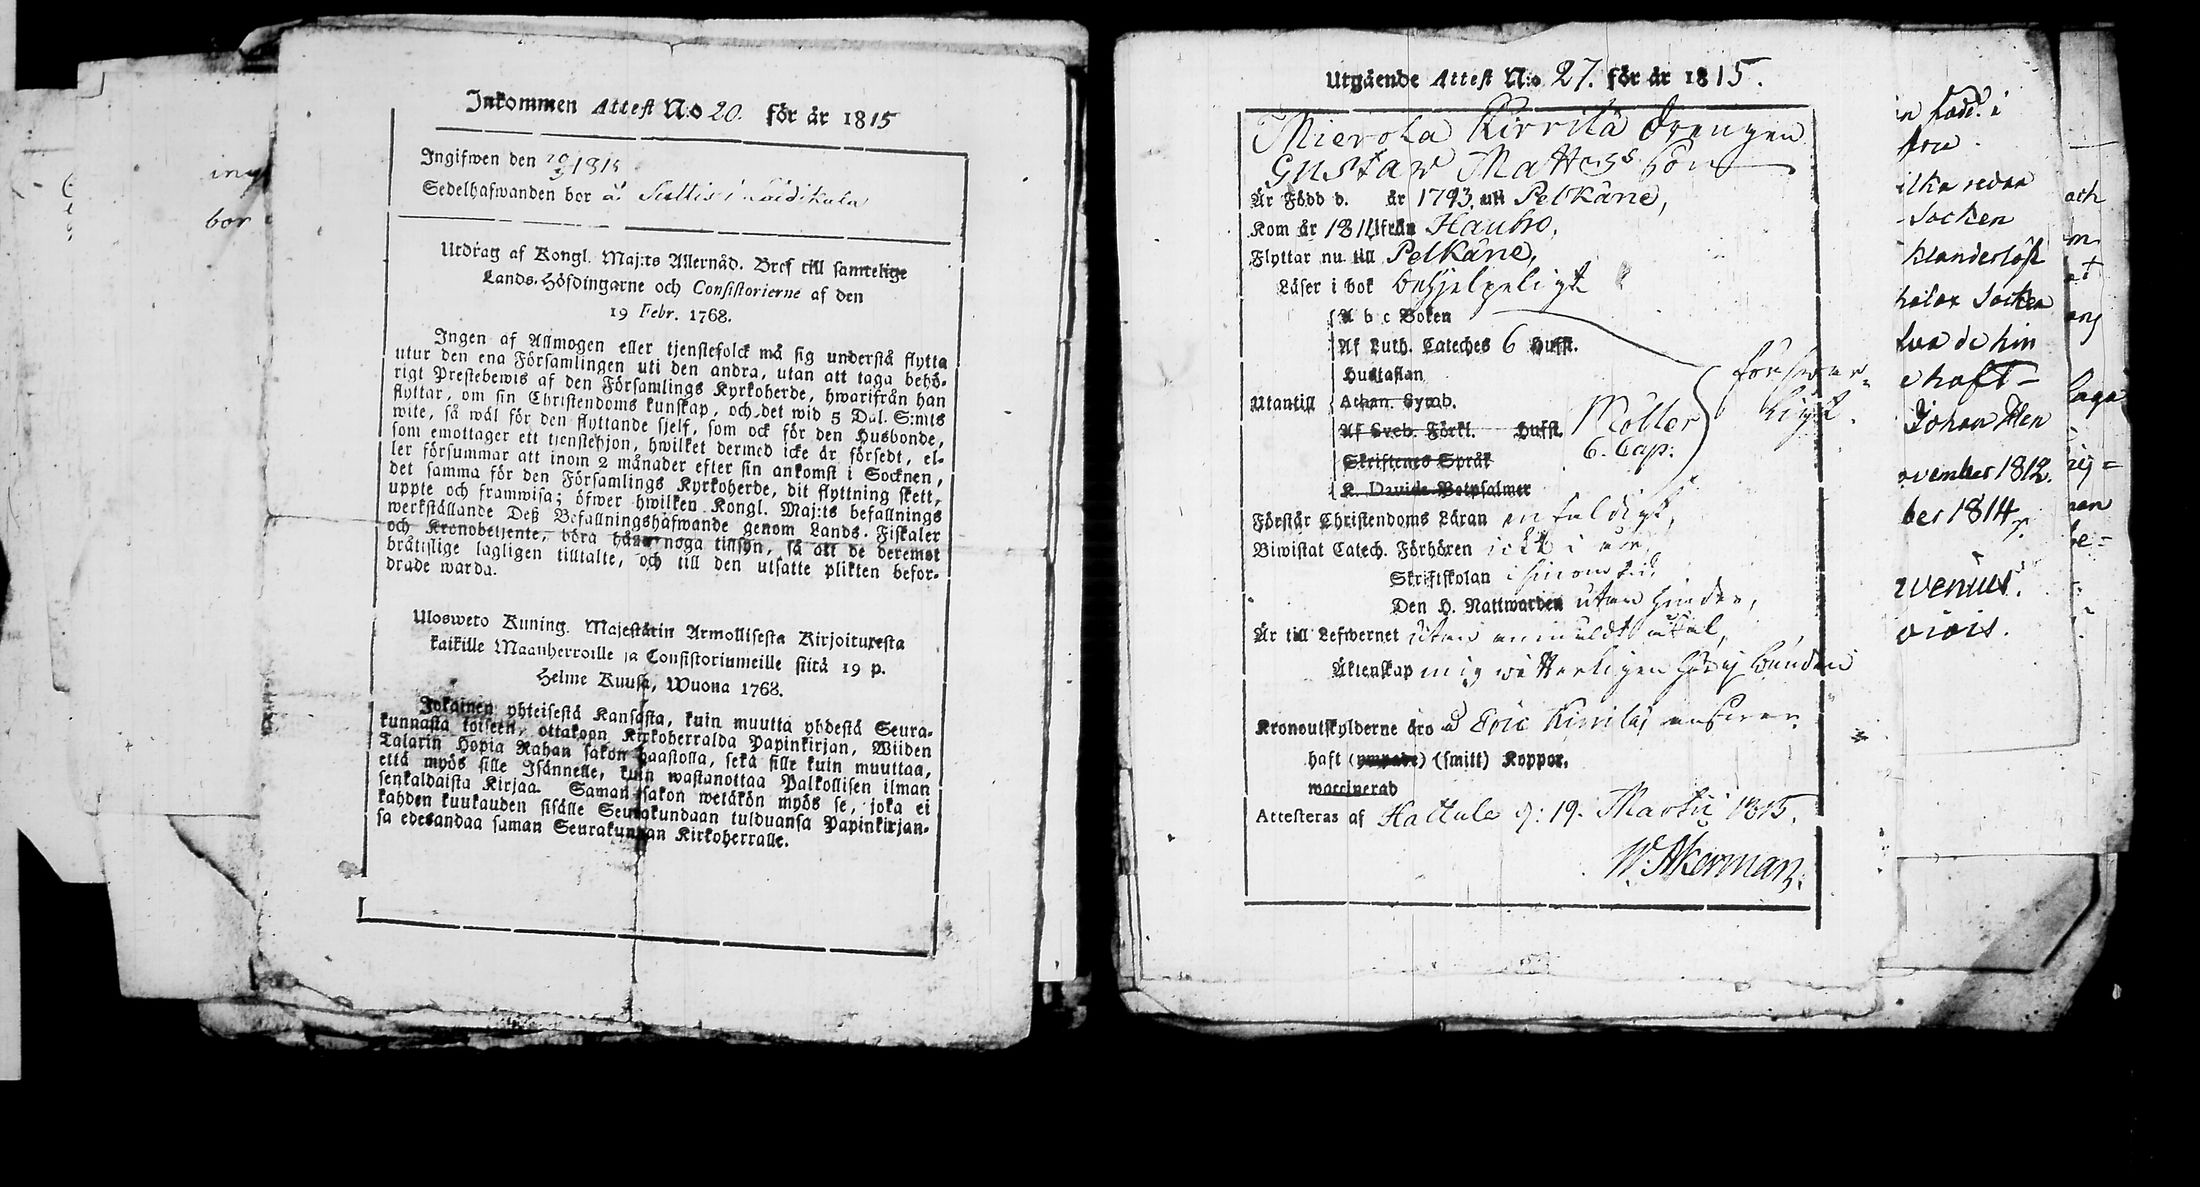 ing
bor
Inkommen Attest N:o 20. för år 1815
Ingifwen den 20/3 1815
Sedelhafwanden bor å
Utdrag af Kongl. Maj:ts Allernåd. Bref till samtelige
Lands-Höfdingarne och Consistorierne af den
19 Febr. 1768.
Ingen af Allmogen eller tjenstefolck må sig understå flytta
utur den ena Församlingen uti den andra, utan att taga behö-
rigt Prestebewis af den Församlings Kyrkoherde, hwarifrån han
flyttar, om sin Christendoms kunskap, och det wid 5 Dal. S:mts
wite, så wäl för den flyttande sjelf, som ock för den Husbonde,
som emottager ett tjenstehjon, hwilket dermed icke är försedt, el-
ler försummar att inom 2 månader efter sin ankomst i Socknen,
det samma för den Församlings Kyrkoherde, dit flyttning skett,
uppte och framwisa; öfwer hwilken Kongl. Maj:ts befallnings
werkställande Deß Befallningshafwande genom Lands-Fiskaler
och Kronobetjente, böra hafwa noga tillsyn, så att de deremot
bråttslige lagligen tilltalte, och till den utsatte plikten befor-
drade warda.
Ulosweto Kuning. Majestätin Armollisesta Kirjoituxesta
kaikille Maanherroille ja Consistoriumeille siitä 19 p.
Helme Kuusa, Wuona 1768.
Jokainen yhteisestä Kansasta, kuin muutta yhdestä Seura-
kunnasta toiseen, ottakoon Kirkoherralda Papinkirjan, Wiiden
Talarin Hopia Rahan sakon haastolla, sekä sille kuin muuttaa,
että myös sille Isännelle, kuin wastanottaa Palkollisen ilman
senkaldaista Kirjaa. Saman sakon wetäkön myös se, joka ei
kahden kuukauden sisälle Seurakundaan tulduansa Papinkirjan-
sa edesandaa saman Seurakunnan Kirkoherralle.
Utgående Attest N:o 27. för år 1815.
Mierola Kirrilä Drengen
Gustav Matts son
Är Född d. år 1793. uti Pelkäne,
Kom år 1814 från Hauho,
Flyttar nu till Pelkäne,
Läser i bok behjelpeligt
A b c Boken
Af Luth. Cateches 6 Hufst.
Hustaflan
Utantill Athan. Symb.
Af Sveb. Förkl. Hufst. Möller
6. Cap:
försvar-
ligt.
Skriftenes Språk
K. Davids Botpsalmer
Förstår Christendoms Läran enfaldigt,
Biwistat Catech. Förhören
Skriftskolan i sinom tid,
Den H. Nattwarden utan hinder,
Är till Lefwernet utan anmäldt åtal,
Äktenskap mig vetterligen ej bunden
Kronoutskylderne äro å Eric Kirrilä ansvar-
haft (ympade) (smitt) Koppor.
waccinerad
Attesteras af Hattula d: 19. Martii 1815.
W. Åkerman.
Socken
Johan Hen
ovember 1812.
ber 1814